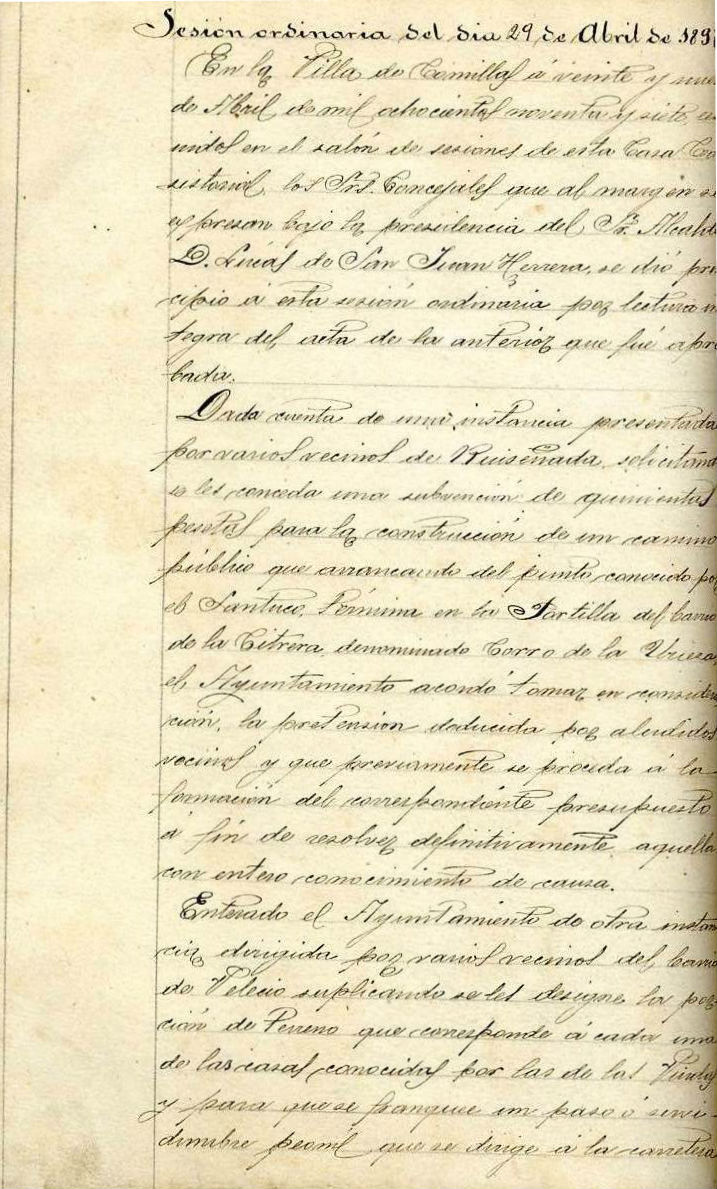 Sesión ordinaria del dia 29 de Abril de 189
En la Villa de Comillas á veinte y nue
de Abril de mil ochocientos noventa y siete, re
unidos en el salón de sesiones de esta Casa Con
sistorial, los Srs. Concejales que al margen se
expresan bajo la presidencia del Sr. Alcalde
D. Lucas de San Juan Herrera, se dió prin
cipio á esta sesión ordinaria por lectura in
tegra del acta de la anterior que fué apro
bada.
Dada cuenta de una instancia presentada
por varios vecinos de Ruiseñada, solicitando
se les conceda una subvención de quinientas
pesetas para la construcción de un camino
público que arrancando del punto conocido por
el Santuco, termina en la Portilla del barrio
de la Citrera, denominado Corro de la
el Ayuntamiento acordó tomar en considera
ción, la pretension deducida por aludidos
vecinos y que previamente se proceda á la
formación del correspondiente presupuesto
á fin de resolver definitivamente, aquella
con entero conocimiento de causa.
Enterado el Ayuntamiento de otra instan
cia dirigida por varios vecinos del barrio
de Velecio suplicando se les designe la por
ción de terreno que corresponde á cada una
de las casas conocidas por las de las
y para que se franquee un paso ó servi-
dumbre peonil que se dirige á la carretera